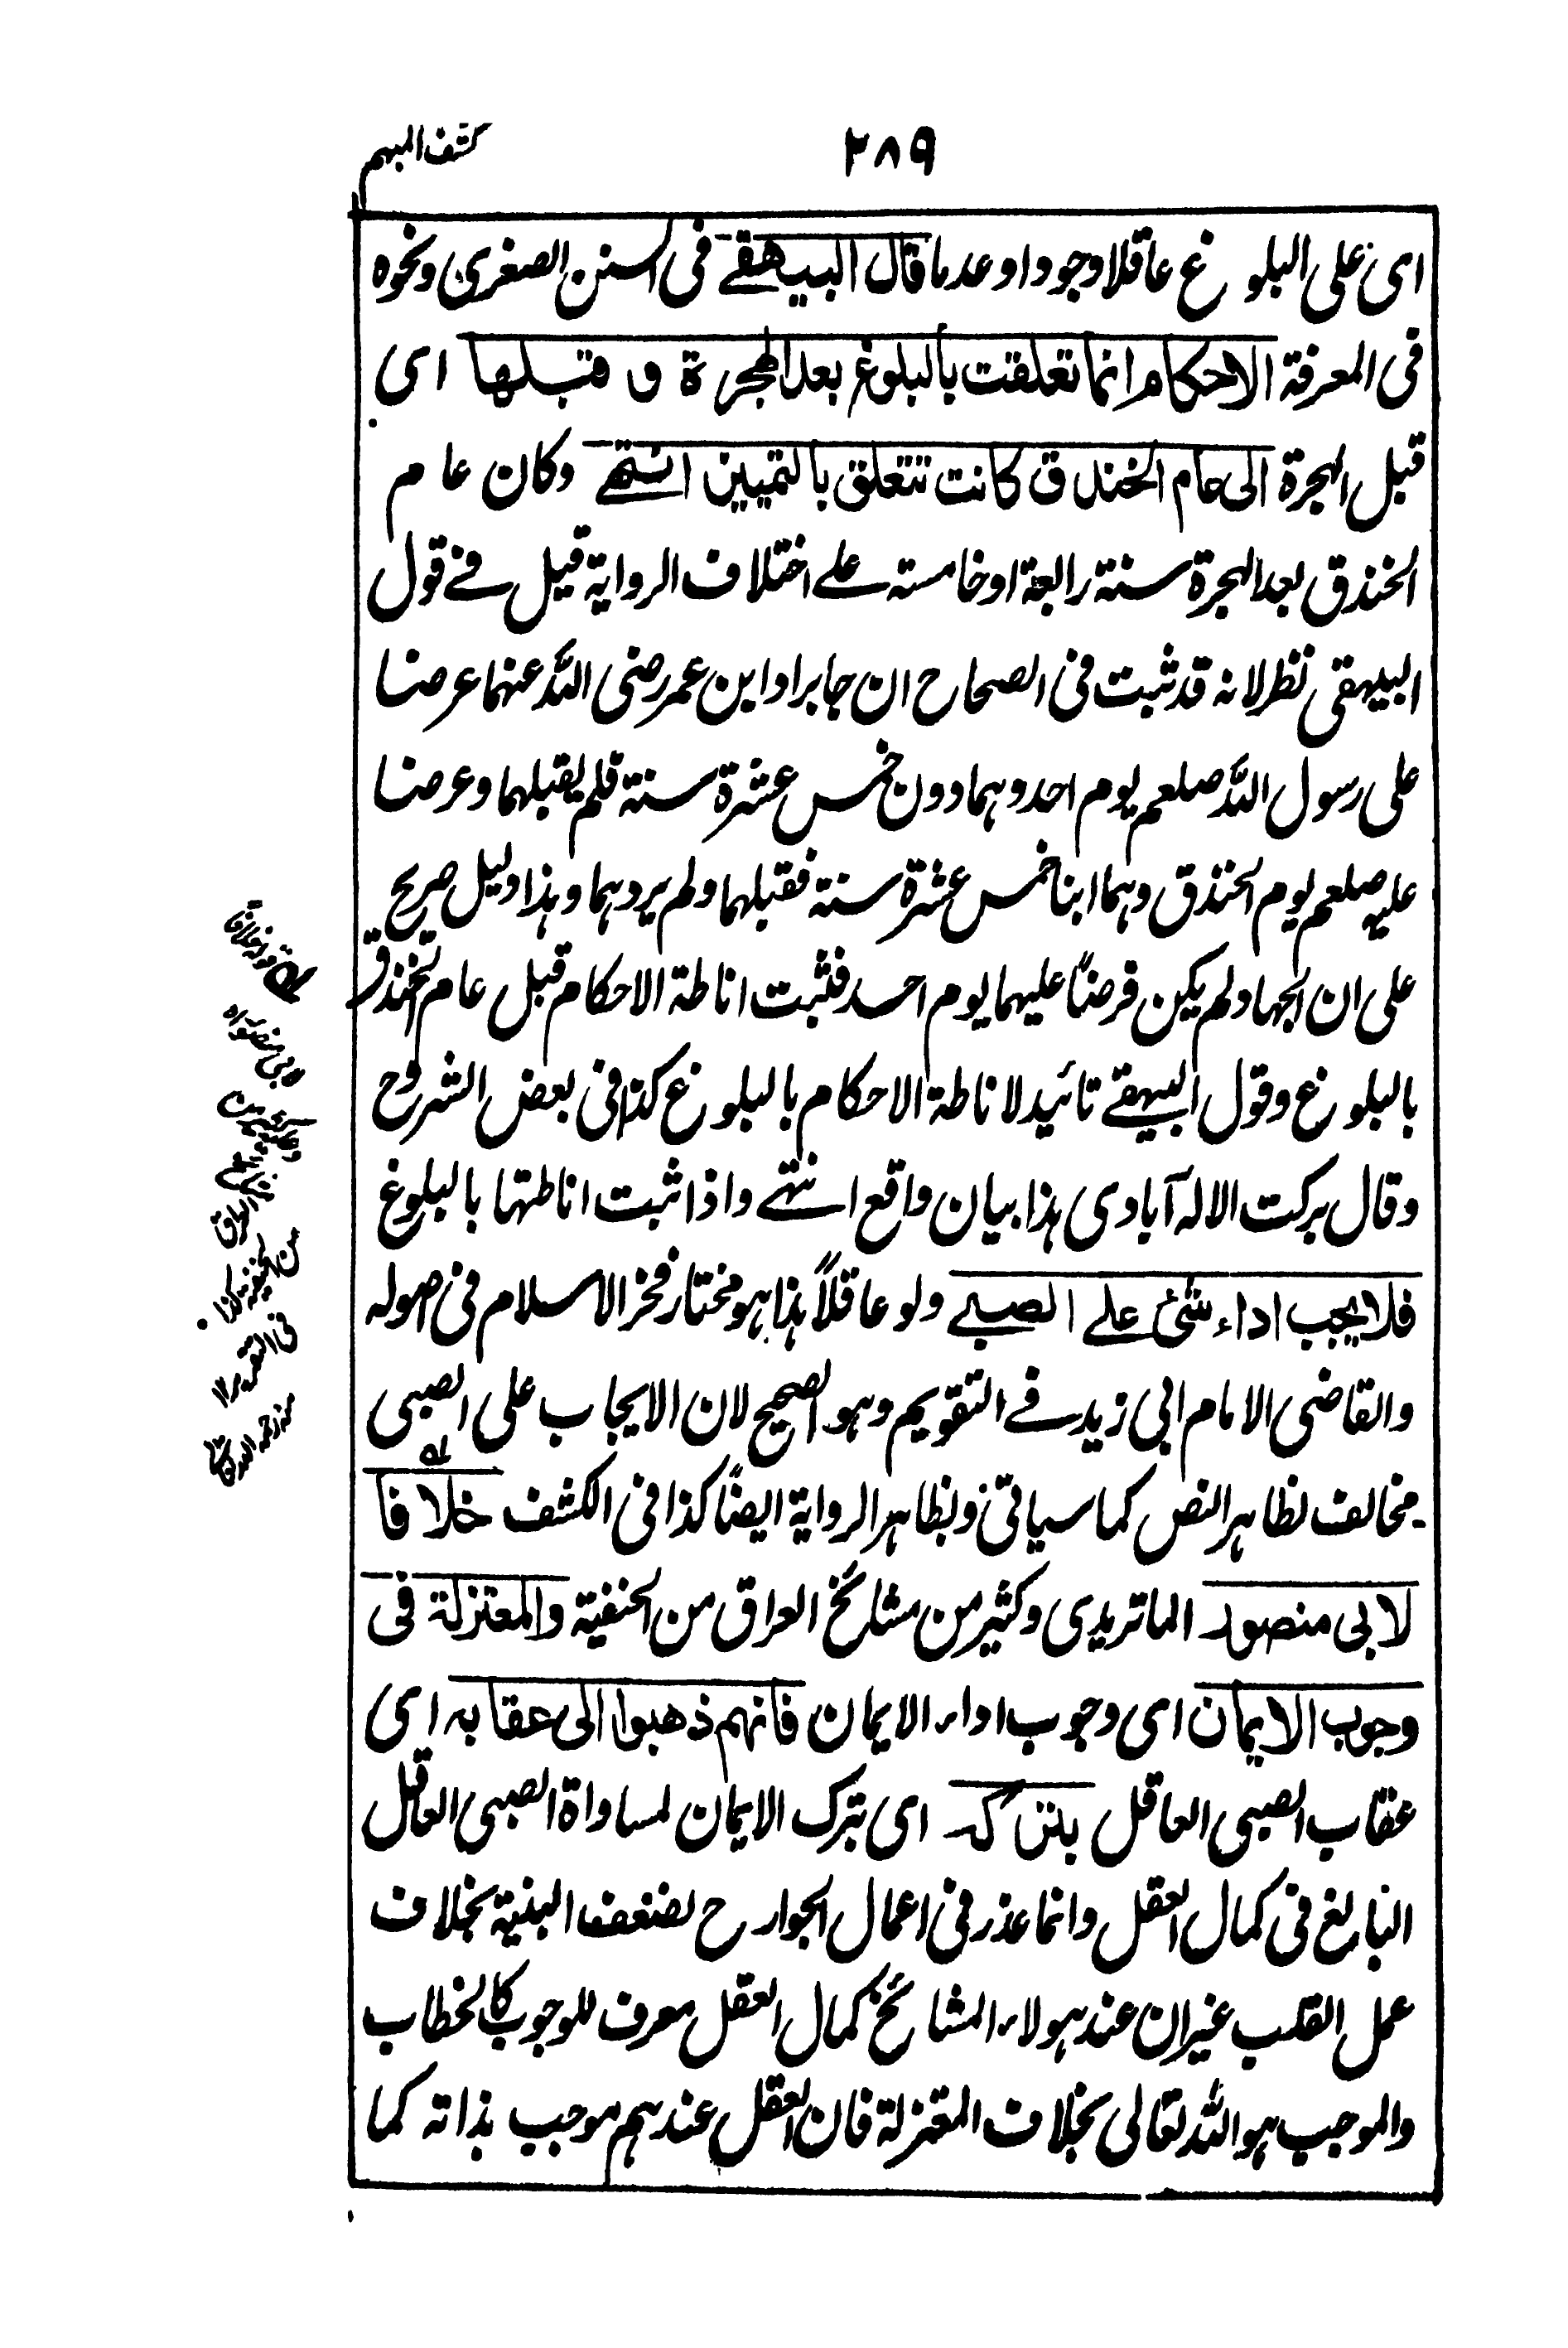 ٢٨٩
كشف المبهم
اى على البلوغ عاقلا وجودا وعدما قال البيهقے فى السنن الصغرى ونحوه
فى المعرفة الاحكام انما تعلقت بالبلوغ بعد الهجرة و قبلها اى
قبل الهجرة الى عام الخندق كانت تتعلق بالتمييز انتهے وكان عام
الخندق بعد الهجرة سنة رابعة او خامسته علے اختلاف الرواية قيل فے قول
البيهقى نظر لانه قد ثبت فى الصحاح ان جابرا وابن عمر رضى الله عنهما عرضا
على رسول الله صلعم يوم احد وهما دون خمس عشرة سنة فلم يقبلهما وعرضا
عليه صلعم يوم الخندق وهما ابنا خمس عشرة سنة فقبلهما ولم يردهما وهذا دليل صريح
على ان الجهاد لم يكن فرضاً عليهما يوم احد فثبت اناطة الاحكام قبل عام الخندق
بالبلوغ وقول البيهقے تائيد لاناطة الاحكام بالبلوغ كذا فى بعض الشروح
وقال بركت الاله آبادى هذا بيان واقع انتهے واذا ثبت اناطتها بالبلوغ
فلا يجب اداء شئ علے الصبے ولو عاقلاً هذا هو مختار فخر الاسلام فى اصوله
والقاضى الامام ابى زيد فے التقويم وهو الصحيح لان الايجاب على الصبى
مخالف لظاهر النص كما سياتى ولظاهر الرواية ايضاً كذا فى الكشف خلافا
لابى منصور الماتريدى وكثير من مشائخ العراق من الحنفية والمعتزلة فى
وجوب الايمان اى وجوب اداء الايمان فانهم ذهبوا الى عقابه اى
عقاب الصبى العاقل بتركه اى بترك الايمان لمساواة الصبى العاقل
البالغ فى كمال العقل وانما عذر فى اعمال الجوارح لضعف البنية بخلاف
عمل القلب غير ان عند هولاء المشائخ كمال العقل معرف للوجوب كالخطاب
والموجب هو الله تعالى بخلاف المعتزلة فان العقل عندهم موجب بذاته كما
له قوله خلافا
لابى منصور اه
العراق
من الحنفية كذا
فى التقرير ١٢
منه رحمه الله تعالى